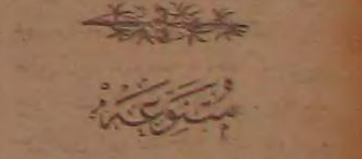 مُتَنَوِّعَة